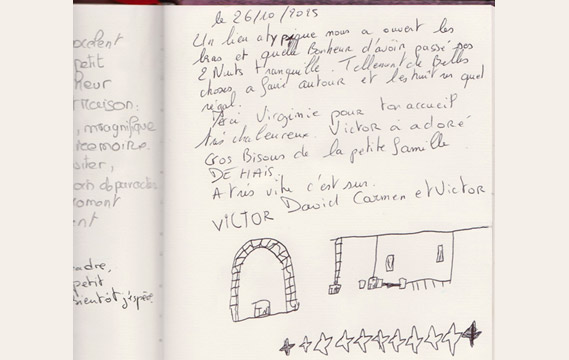 ocelent
petit
heur
maison:
, magnifique
ziter,
omont
nt
adre,
petit
bientôt j'espère
le 26/10/2025
Un lieu atypique nous a ouvert les
bras et quelle Bonheur d'avoir passé nos
2 Nuits tranquille. Tellement de Belles
choses a faire autour et les huitres quel
régal.
Merci Virginie pour ton accueil
très chaleureux. Victor à adoré
Gros Bisous de la petite famille
DEHAIS.
A très vite c'est sur.
David Carmen et Victor
VICTOR